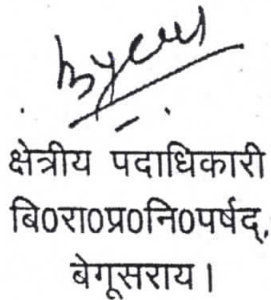 क्षेत्रीय पदाधिकारी
बि0रा0प्र0नि0पर्षद्,
बेगूसराय।